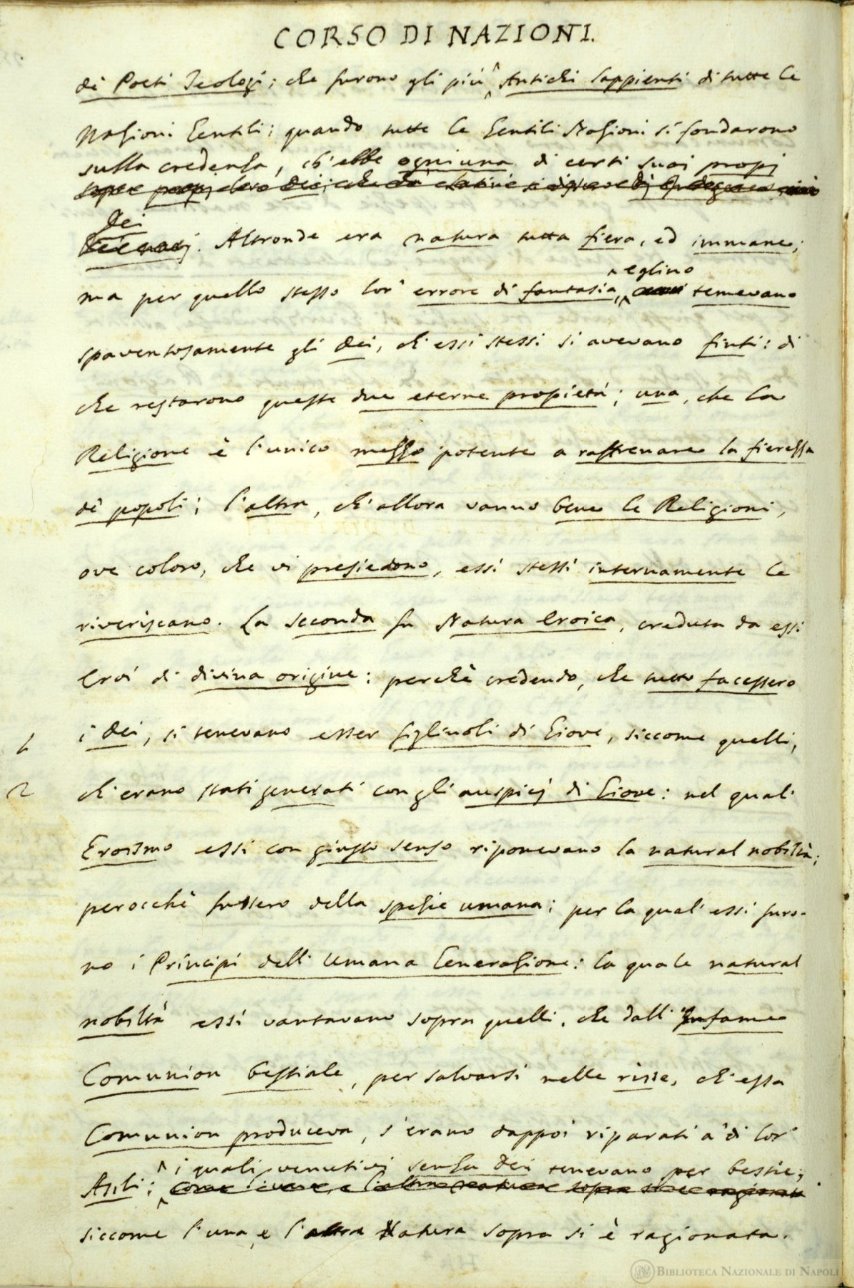 CORSO DI NAZIONI.
de' Poeti Teologi; che furono gli più Antichi Sappienti di tutte le
Nazioni Gentili; quando tutte le Gentili Nazioni si fondarono
sulla credenza, ch'ebbe ogniuna di certi suoi propj
Dei
. Altronde era natura tutta fiera, ed immane;
eglino
ma per quello stesso lor' errore di fantasia, temevano
spaventosamente gli Dei, ch'essi stessi si avevano finti: di
che restarono queste due eterne propietà; una, che la
Religione è l'unico mezzo potente a raffrenare la fierezza
de' popoli; l'altra, ch'allora vanno bene le Religioni,
ove coloro, che vi presiedono, essi stessi internamente le
riveriscano. La seconda fu Natura Eroica, creduta da essi
Eroi di divina origine: perchè credendo, che tutto facessero
i Dei, si tenevano esser figliuoli di Giove, siccome quelli,
ch'erano stati generati con gli auspicj di Giove: nel qual'
Eroismo essi con giusto senso riponevano la natural nobiltà;
perocchè fussero della spezie umana; per la qual' essi furo-
no i Principi dell' Umana Generazione: la quale natural
nobiltà essi vantavano sopra quelli, che dall' Infame
Comunion bestiale, per salvarsi nelle risse, ch'essa
Comunion produceva, s'erano dappoi riparati a' di lor'
i quali venutivi senza Dei tenevano per bestie;
Asili;
siccome l'una, e l'altra Natura sopra si è ragionata.
BIBLIOTECA NAZIONALE DI NAPOLI